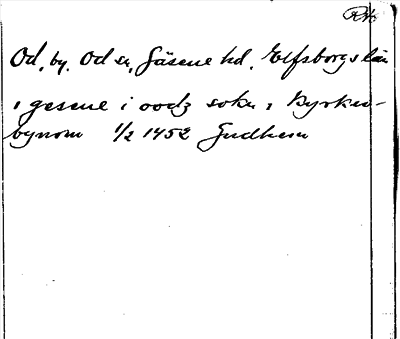 RA
Od, by. Od sn, Gäsene hd. Elfsborgs län
i gesene i oodz sokn i Kyrkio-
bynom 1/2 1452 Gudhem